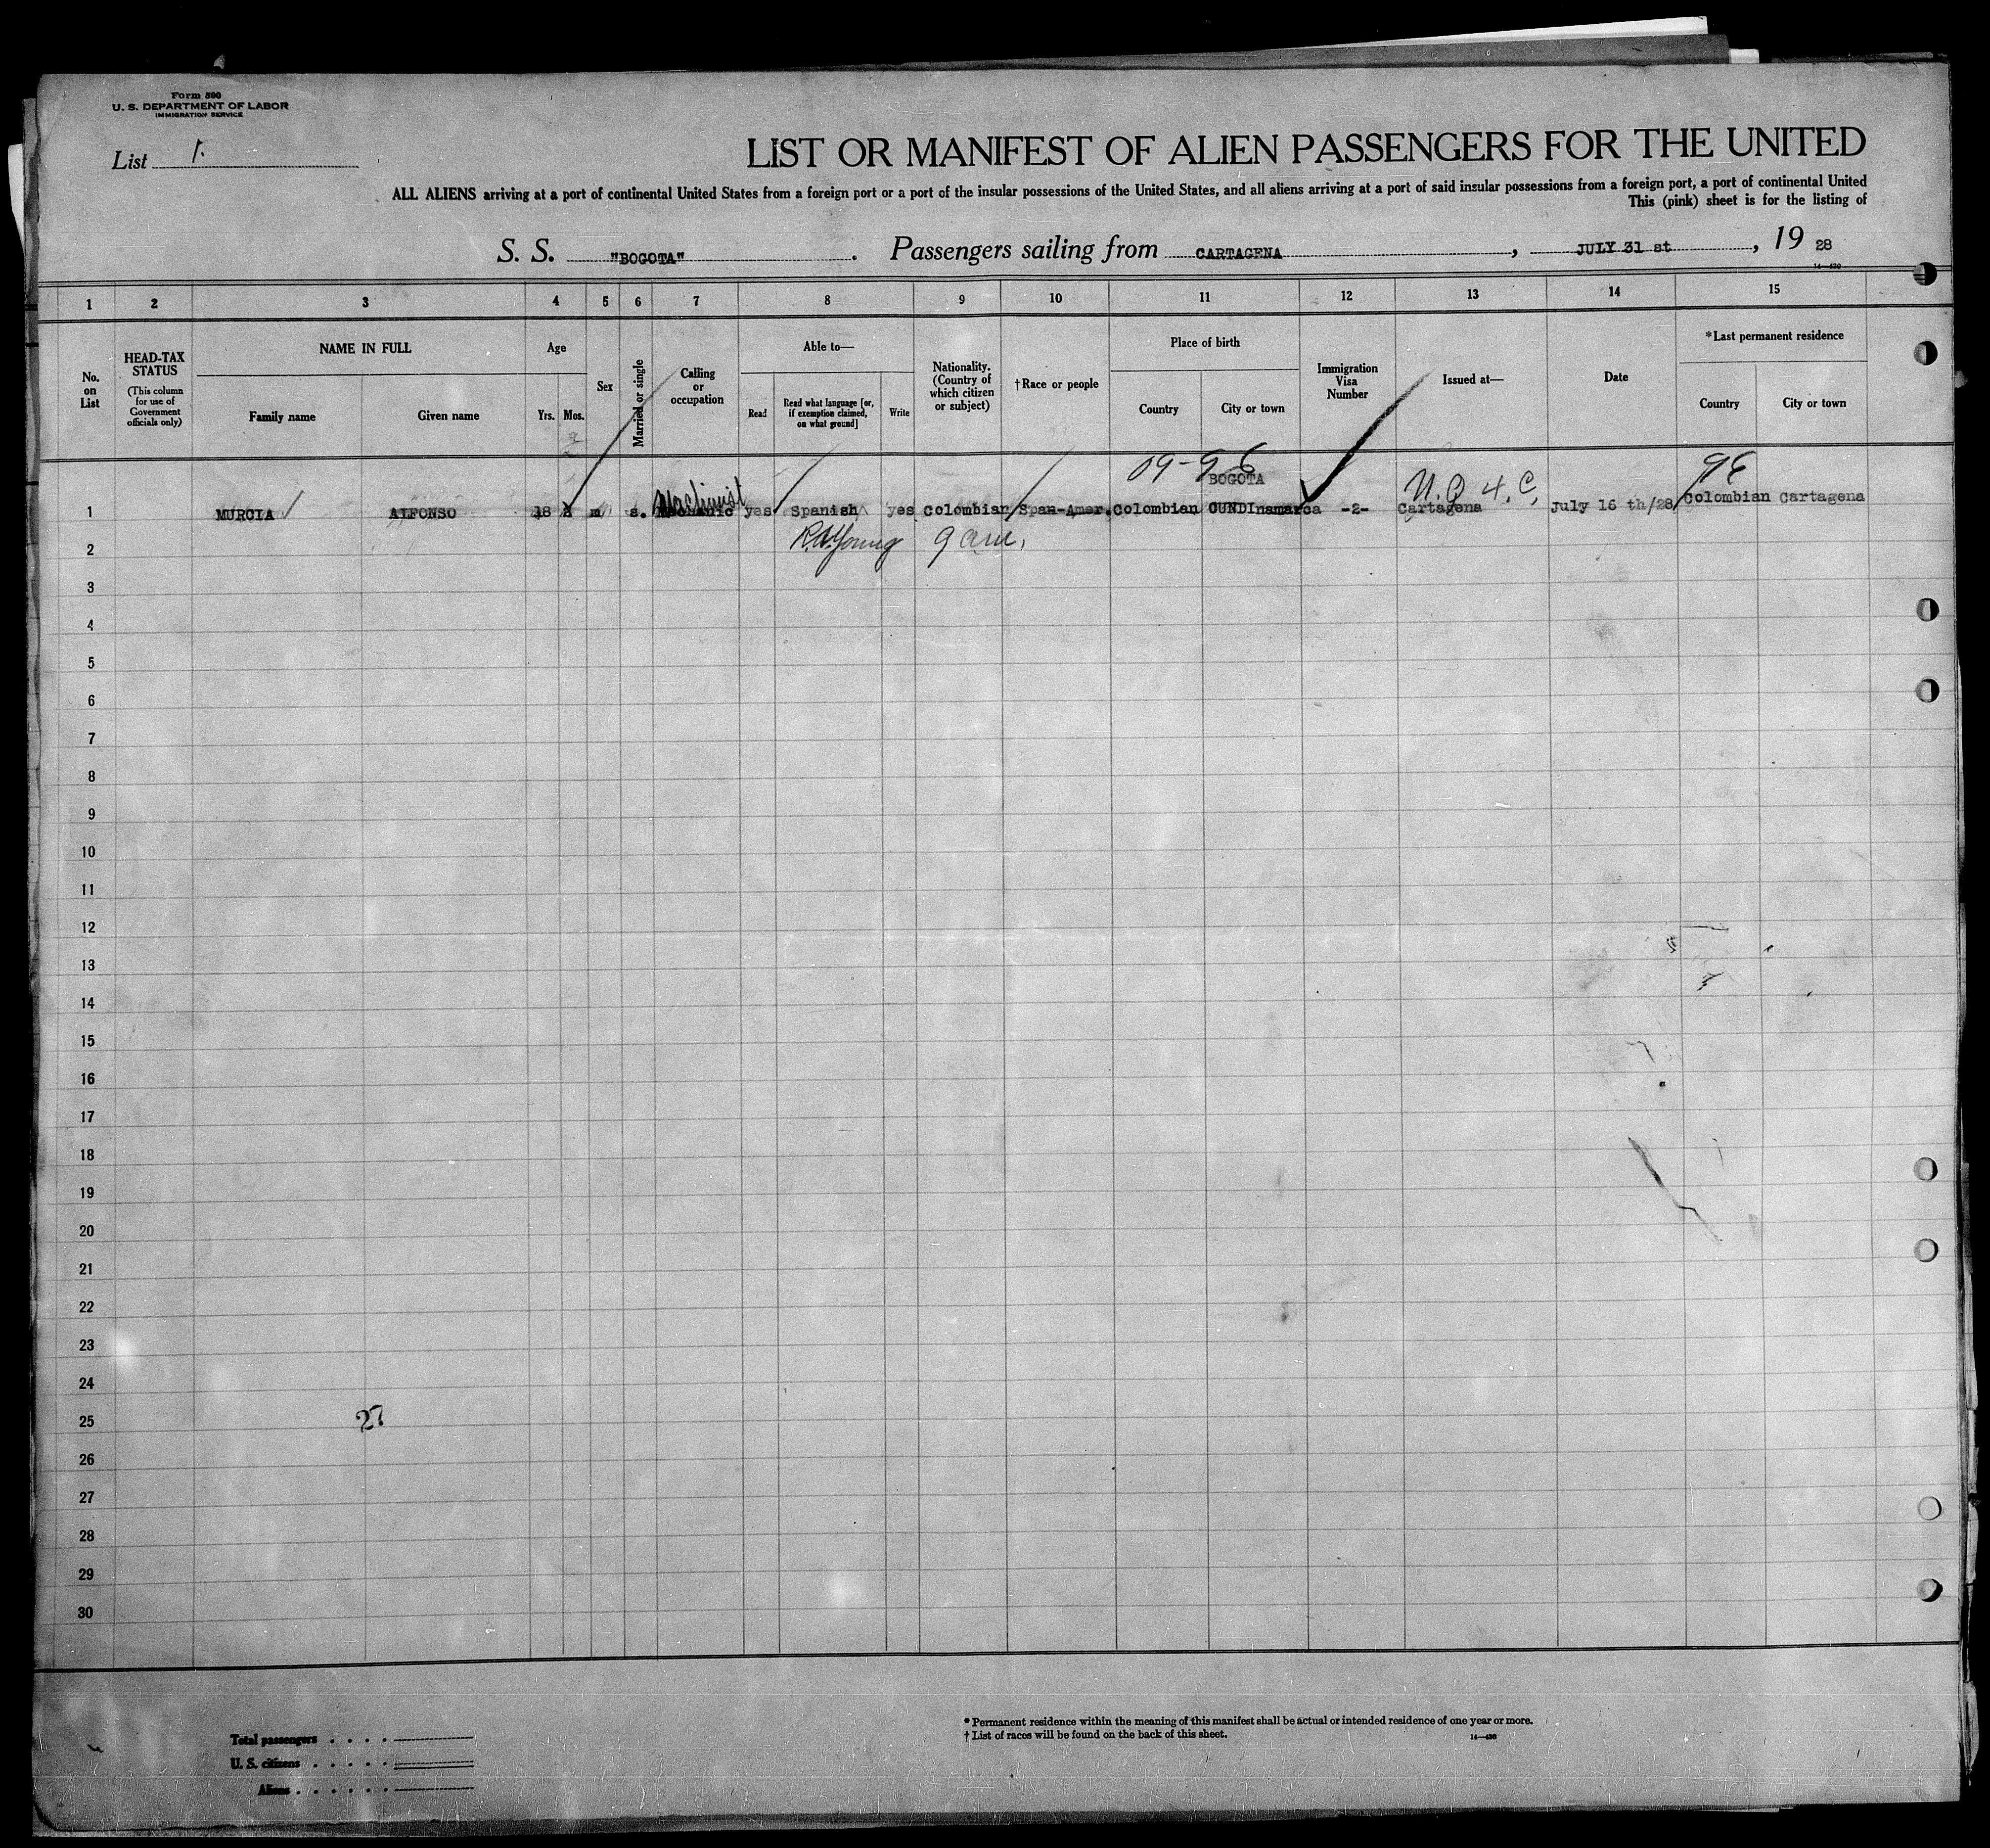 Form 500
U. S. DEPARTMENT OF LABOR
IMMIGRATION SERVICE
List 1.
LIST OR MANIFEST OF ALIEN PASSENGERS FOR THE UNITED
ALL ALIENS arriving at a port of continental United States from a foreign port or a port of the insular possessions of the United States, and all aliens arriving at a port of said insular possessions from a foreign port, a port of continental United
This (pink) sheet is for the listing of
S. S. "BOGOTA". Passengers sailing from CARTAGENA, JULY 31 st, 19 28
1 2 3 4 5 6 7 8 9 10 11 12 13 14 15
No. on List
HEAD-TAX STATUS
(This column for use of Government officials only)
NAME IN FULL
Family name
Given name
Age
Yrs.
Mos.
Sex
Married or single
Calling or occupation
Able to—
Read
Read what language [or, if exemption claimed, on what ground]
Write
Nationality. (Country of which citizen or subject)
†Race or people
Place of birth
Country
City or town
Immigration Visa Number
Issued at—
Date
*Last permanent residence
Country
City or town
09-9E 9E
Machinist BOGOTA
1 MURCIA ALFONSO 18 m s. Mechanic yes Spanish yes Colombian Span-Amer. Colombian CUNDInamarca -2- Cartagena July 16 th/28 Colombian Cartagena
2 R.W.Young
3
4
5
6
7
8
9
10
11
12
13
14
15
16
17
18
19
20
21
22
23
24
25 27
26
27
28
29
30
* Permanent residence within the meaning of this manifest shall be actual or intended residence of one year or more.
† List of races will be found on the back of this sheet.
Total passengers . . . .
U. S. citizens . . . . .
Aliens . . . . . .